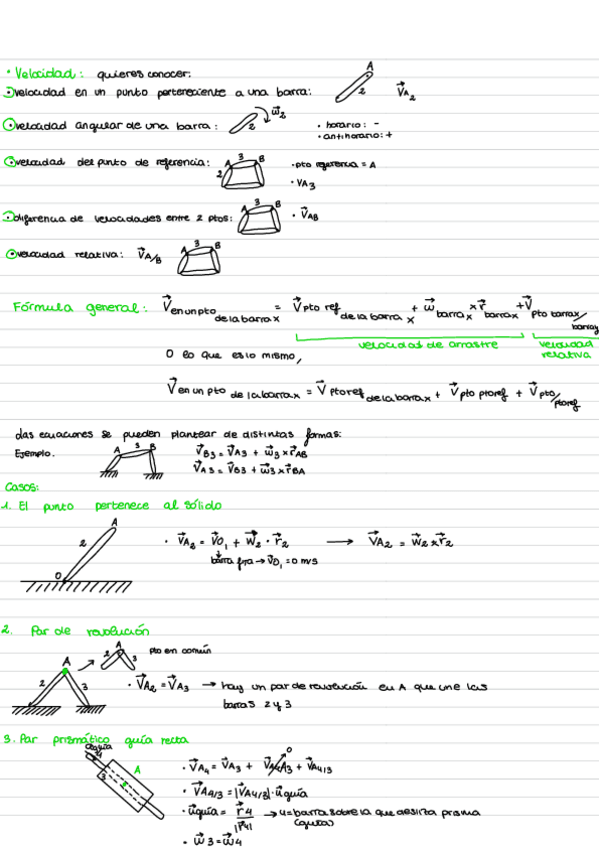 · Velocidad: quieres conocer:
· velocidad en un punto perteneciente a una barra: A 2 V⃗A2
· velocidad angular de una barra: 2 ω⃗2 · horario: -
· antihorario: +
· velocidad del punto de referencia: A 3 B 2 · pto referencia = A
· VA3
· diferencia de velocidades entre 2 ptos: A 3 B · V⃗AB
· velocidad relativa: V⃗A/B A 3 B
Fórmula general: V⃗en un pto de la barra x = V⃗pto ref de la barra x + ω⃗barra x × r⃗barra x + V⃗pto barra x/barra y
velocidad de arrastre velocidad relativa
O lo que es lo mismo,
V⃗en un pto de la barra x = V⃗pto ref de la barra x + V⃗pto pto ref + V⃗pto/pto ref
Las ecuaciones se pueden plantear de distintas formas:
Ejemplo. A 3 B V⃗B3 = V⃗A3 + ω⃗3 × r⃗AB
V⃗A3 = V⃗B3 + ω⃗3 × r⃗BA
Casos:
1. El punto pertenece al sólido
A 2 O · V⃗A2 = V⃗O1 + W⃗2 · r⃗2 → V⃗A2 = W⃗2 × r⃗2
barra fija → V⃗O1 = 0 m/s
2. Par de revolución
A 2 3 pto en común
A 2 3 · V⃗A2 = V⃗A3 → hay un par de revolución en A que une las
barras 2 y 3
3. Par prismático guía recta
guía 4 3 A · V⃗A4 = V⃗A3 + V⃗A4A3 0 + V⃗A4/3
· V⃗A4/3 = |V⃗A4/3| · u⃗guía
· u⃗guía = r⃗4/|r⃗4| → 4 = barra sobre la que desliza prisma
(guía)
· ω⃗3 = ω⃗4